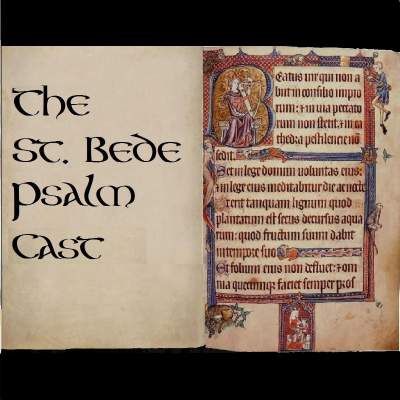 The
St. Bede
Psalm
Cast
Beatus uir qui non a
biit in consilio impio
rum: & in uia peccato
rum non stetit: & in ca
thedra pestilencie nō
sedit.
Set in lege domini uoluntas eius:
& in lege eius meditabitur die ac nocte
Et erit tanquam lignum quod
plantatum est secus decursus aqua
rum: quod fructum suum dabit
in tempore suo
Et folium eius non defluet: & om
nia quecumque faciet semper pros